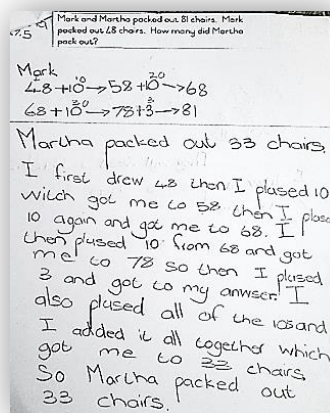 7.5
Mark and Martha packed out 81 chairs. Mark
packed out 48 chairs. How many did Martha
pack out?
Mark
10 20
48+10→58+10→68
30 3
68+10→78+3→81
Martha packed out 33 chairs.
I first drew 48 then I plused 10
witch got me to 58 then I plused
10 again and got me to 68. I
then plused 10 from 68 and got
me to 78 so then I plused
3 and got to my anwser. I
also plused all of the 10s and
I added it all together which
got me to 33 chairs
So Martha packed out
33 chairs.